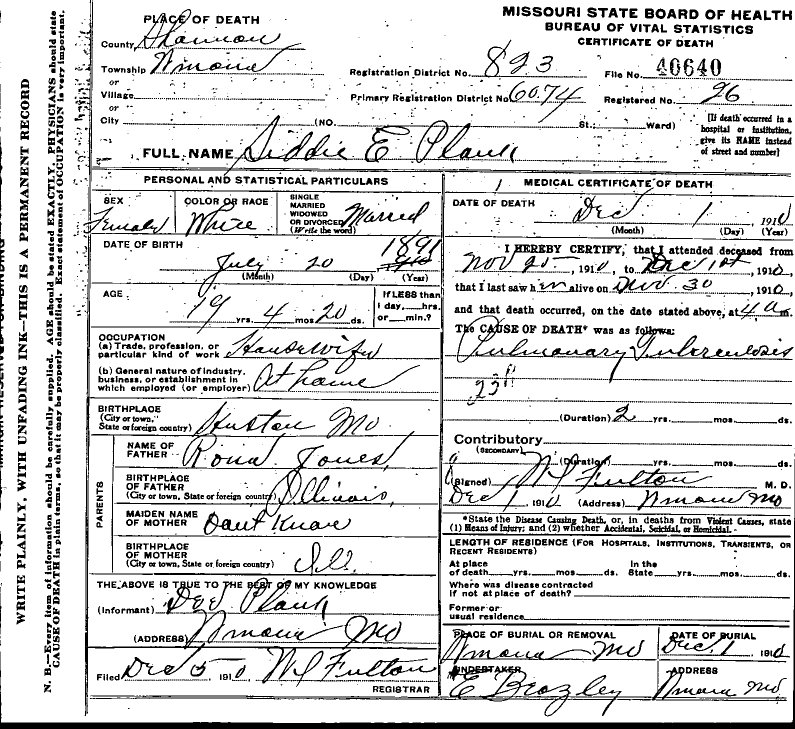 MISSOURI STATE BOARD OF HEALTH
BUREAU OF VITAL STATISTICS
CERTIFICATE OF DEATH
PLACE OF DEATH
County Shannon
Township Winona
or
Village
or
City (NO. St.; Ward)
Registration District No. 823 File No. 40640
Primary Registration District No. 6074 Registered No. 26
[If death occurred in a
hospital or institution,
give its NAME instead
of street and number]
FULL NAME Siddie E Plank
PERSONAL AND STATISTICAL PARTICULARS
SEX Female
COLOR OR RACE White
SINGLE
MARRIED
WIDOWED
OR DIVORCED
(Write the word) Married
DATE OF BIRTH
July 20 1891
(Month) (Day) (Year)
AGE
19 yrs. 4 mos. 20 ds.
If LESS than
1 day, hrs.
or min.?
OCCUPATION
(a) Trade, profession, or
particular kind of work Housewife
(b) General nature of industry,
business, or establishment in
which employed (or employer) At home
BIRTHPLACE
(City or town,
State or foreign country) Huston Mo
PARENTS
NAME OF
FATHER Jones
BIRTHPLACE
OF FATHER
(City or town, State or foreign country) Illinois
MAIDEN NAME
OF MOTHER Dont Know
BIRTHPLACE
OF MOTHER
(City or town, State or foreign country) Ill
THE ABOVE IS TRUE TO THE BEST OF MY KNOWLEDGE
(Informant) Plank
(ADDRESS) Winona Mo
Filed Dec 5 1910 Fulton
REGISTRAR
MEDICAL CERTIFICATE OF DEATH
DATE OF DEATH
Dec 1 1910
(Month) (Day) (Year)
I HEREBY CERTIFY, that I attended deceased from
Nov 25, 1910, to Dec 1st, 1910,
that I last saw h er alive on Nov. 30, 1910,
and that death occurred, on the date stated above, at 4 a m.
The CAUSE OF DEATH* was as follows:
Pulmonary Tuberculosis
(Duration) 2 yrs. mos. ds.
Contributory
(SECONDARY)
(Duration) yrs. mos. ds.
(Signed) Fulton M. D.
Dec 1 1910 (Address) Winona Mo
*State the Disease Causing Death, or, in deaths from Violent Causes, state
(1) Means of Injury; and (2) whether Accidental, Suicidal, or Homicidal.
LENGTH OF RESIDENCE (FOR HOSPITALS, INSTITUTIONS, TRANSIENTS, OR
RECENT RESIDENTS)
At place
of death yrs. mos. ds.
In the
State yrs. mos. ds.
Where was disease contracted
if not at place of death?
Former or
usual residence
PLACE OF BURIAL OR REMOVAL
Winona Mo
DATE OF BURIAL
Dec. 1 1910
UNDERTAKER
E Brazley
ADDRESS
Winona Mo
WRITE PLAINLY, WITH UNFADING INK—THIS IS A PERMANENT RECORD
N. B.—Every item of information should be carefully supplied. AGE should be stated EXACTLY. PHYSICIANS should state
CAUSE OF DEATH in plain terms, so that it may be properly classified. Exact statement of OCCUPATION is very important.